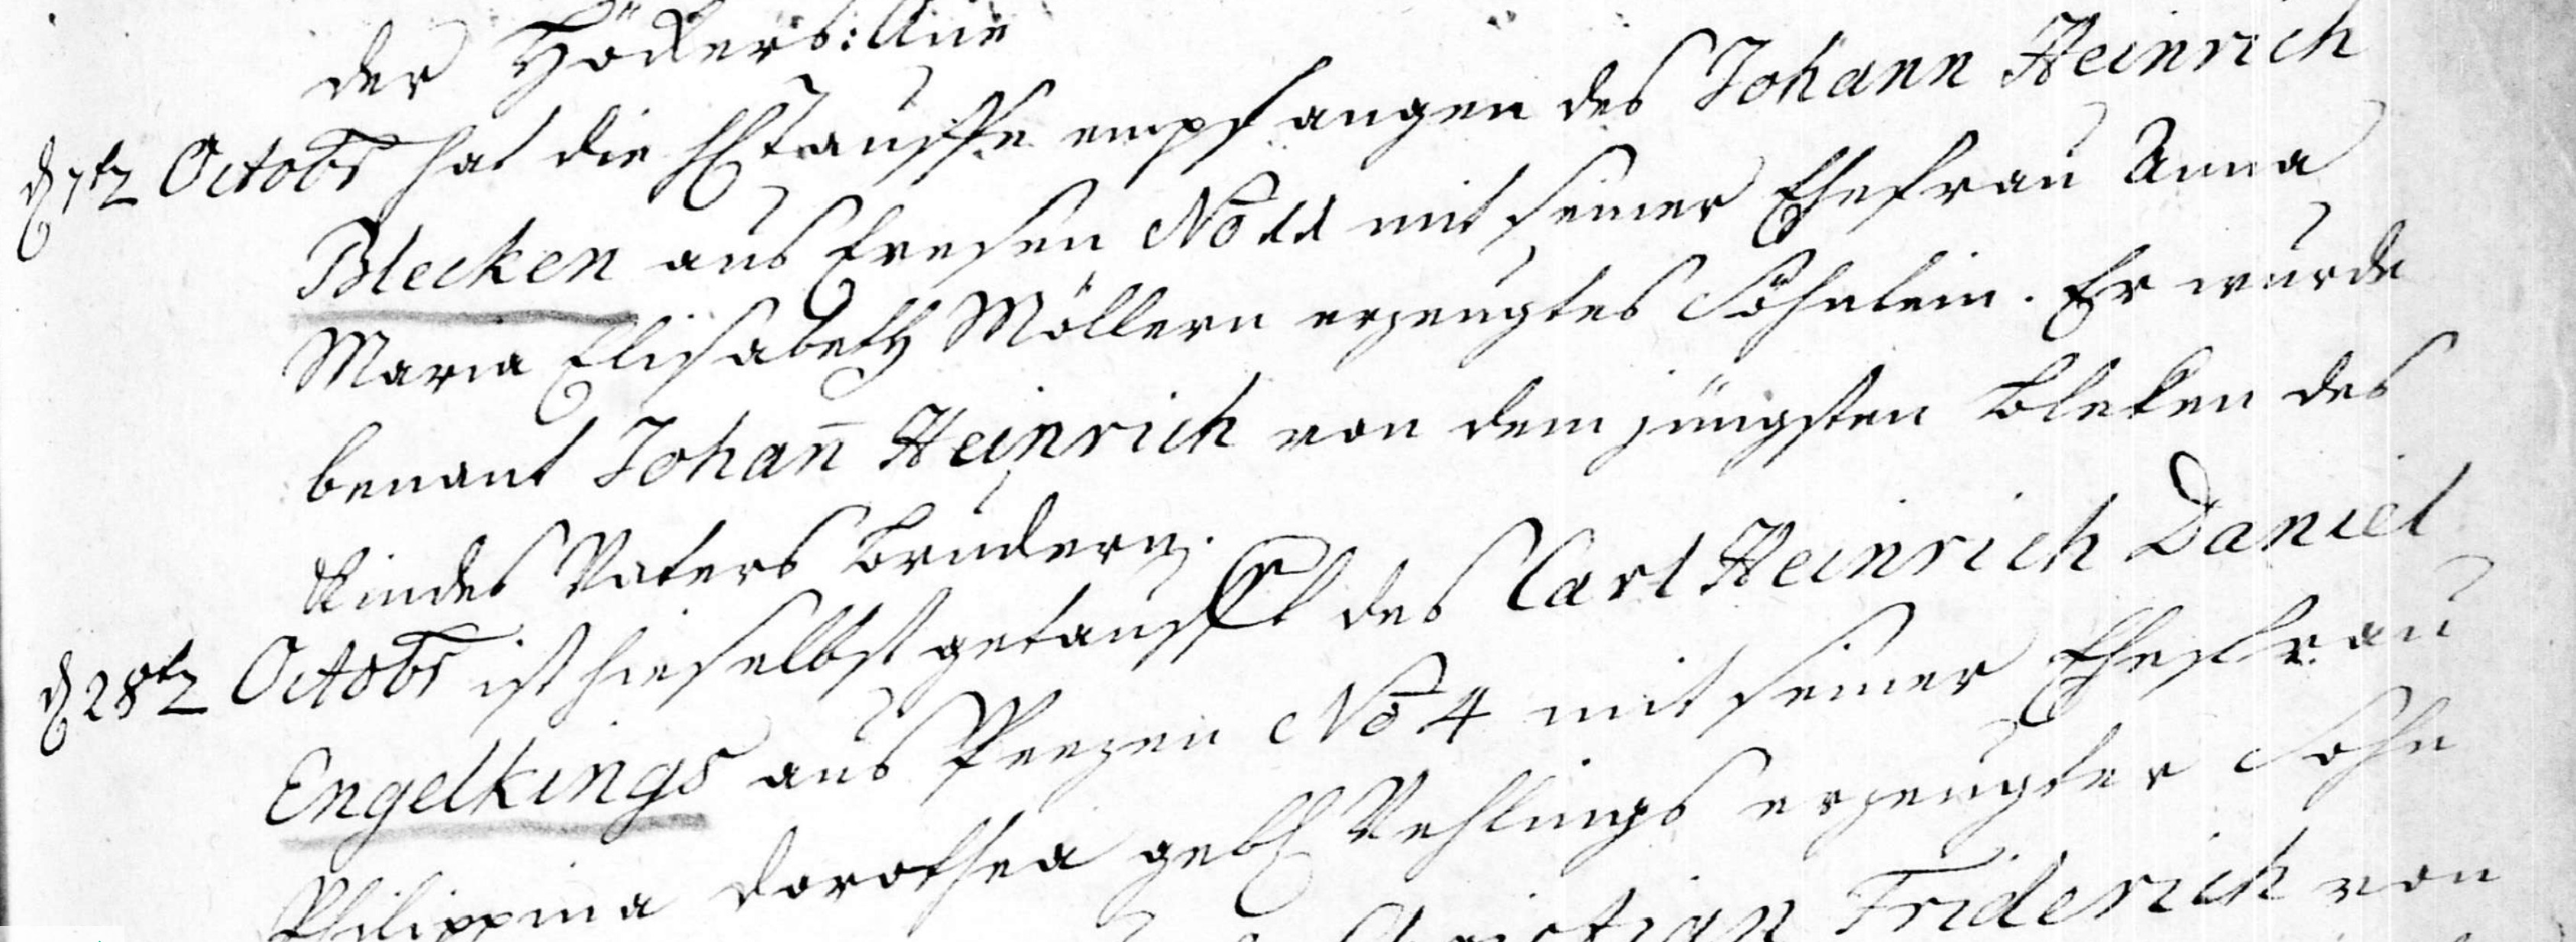 der Höckers: Aue
d 7t Octobr hat die H Tauffe empfangen des Johann Heinrich
Blecken aus Evesen No 11 mit seiner Ehefrau Anna
Maria Elisabeth Möllern erzeugtes Söhnlein. Er wurde
benant Johan̄ Heinrich von dem jüngsten Bleken des
Kindes Vaters Brudern.
d 28t Octobr ist hieselbst getaufft des Carl Heinrich Daniel
Engelkings aus Peezen No 4 mit seiner Ehefrau
Philippina Dorothea geb Vehlings erzeugter Sohn
Christian Friderich von